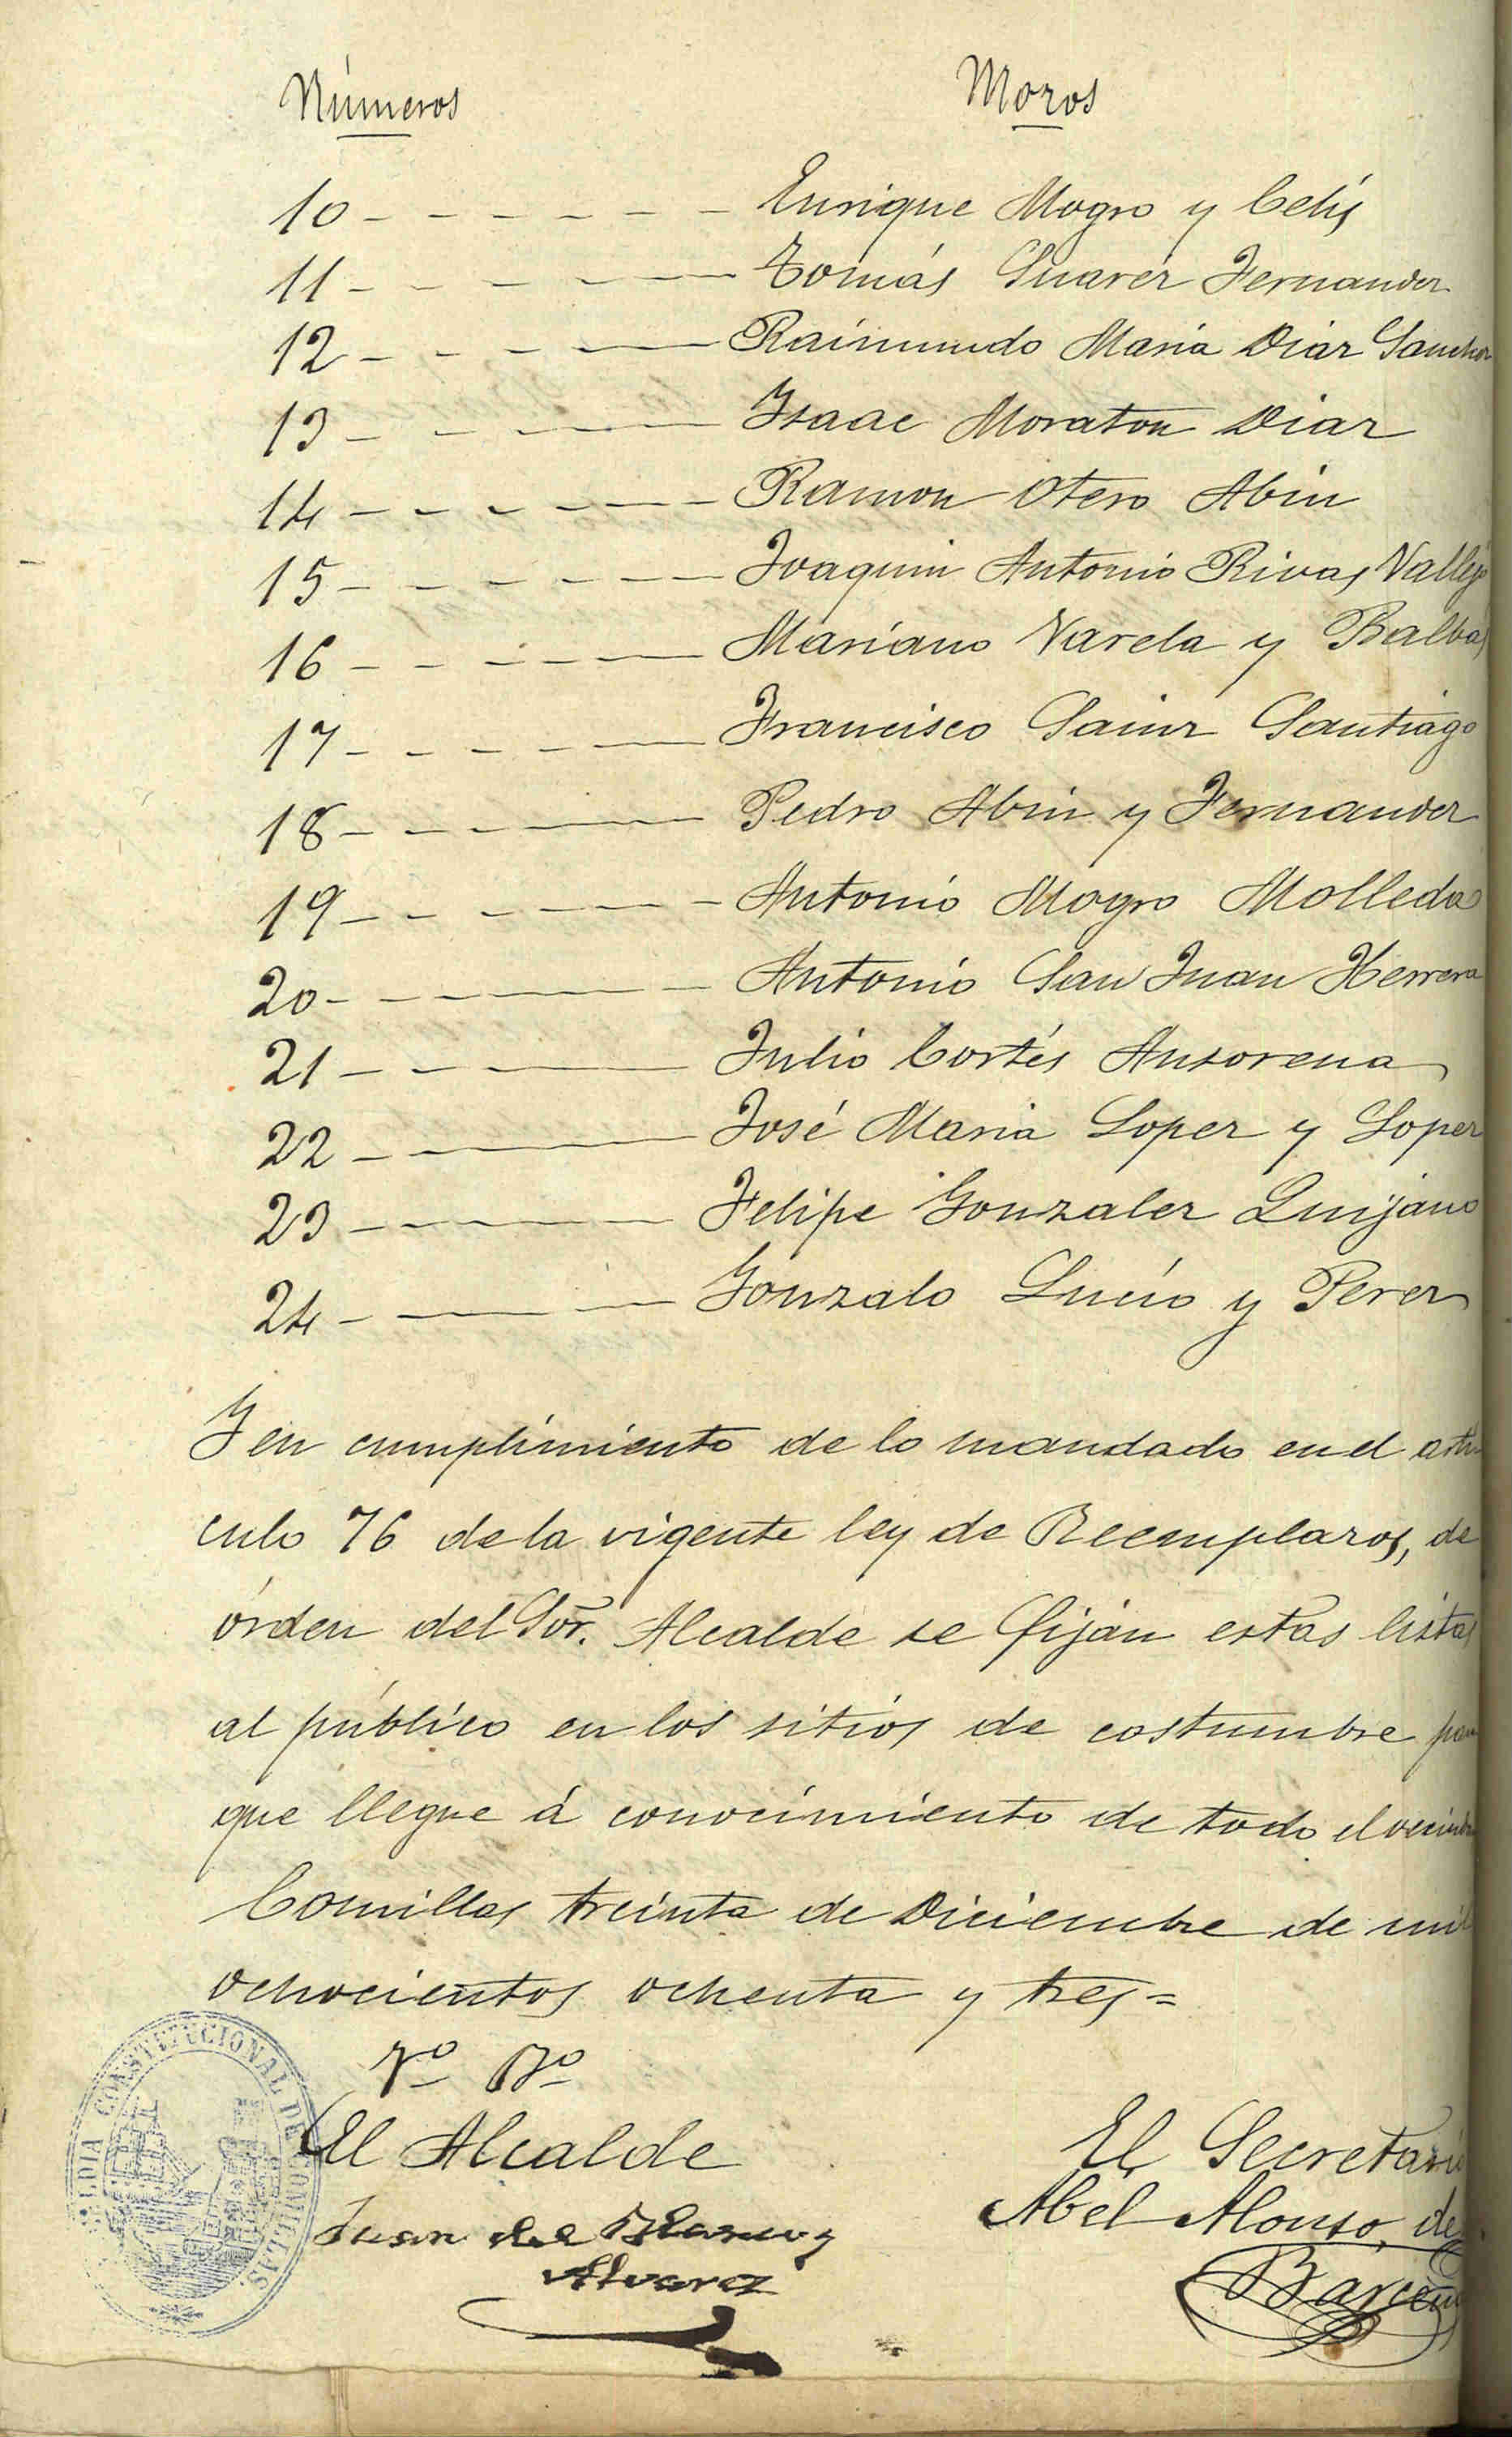 Números Mozos
10 - - - - - - - Enrique Mogro y Celis
11 - - - - - - Tomás Suarez Fernandez
12 - - - - - Raimundo Maria Diaz Sanchez
13 - - - - - Isaac Moraton Diaz
14 - - - - - - - Ramon Otero Abin
15 - - - - - - - Joaquin Antonio Rivas Vallejo
16 - - - - - - Mariano Varela y Balbas
17 - - - - - - Francisco Sainz Santiago
18 - - - - - - Pedro Abin y Fernandez
19 - - - - - - - Antonio Mogro Molleda
20 - - - - - - Antonio San Juan Herrera
21 - - - - Julio Cortés Ansorena
22 - - - José Maria Lopez y Lopez
23 - - - - - Felipe Gonzalez Quijano
24 - - - - Gonzalo Lucio y Perez
Y en cumplimiento de lo mandado en el artí
culo 76 de la vigente ley de Reemplazos, de
órden del Sor. Alcalde se fijan estas listas
al público en los sitios de costumbre para
que llegue á conocimiento de todo el vecind
Comillas treinta de Diciembre de mil
ochocientos ochenta y tres =
Vº Bº
El Alcalde
El Secretario
Juan de
Alvarez
Abel Alonso de
Barcen
ALCALDIA CONSTITUCIONAL DE COMILLAS.